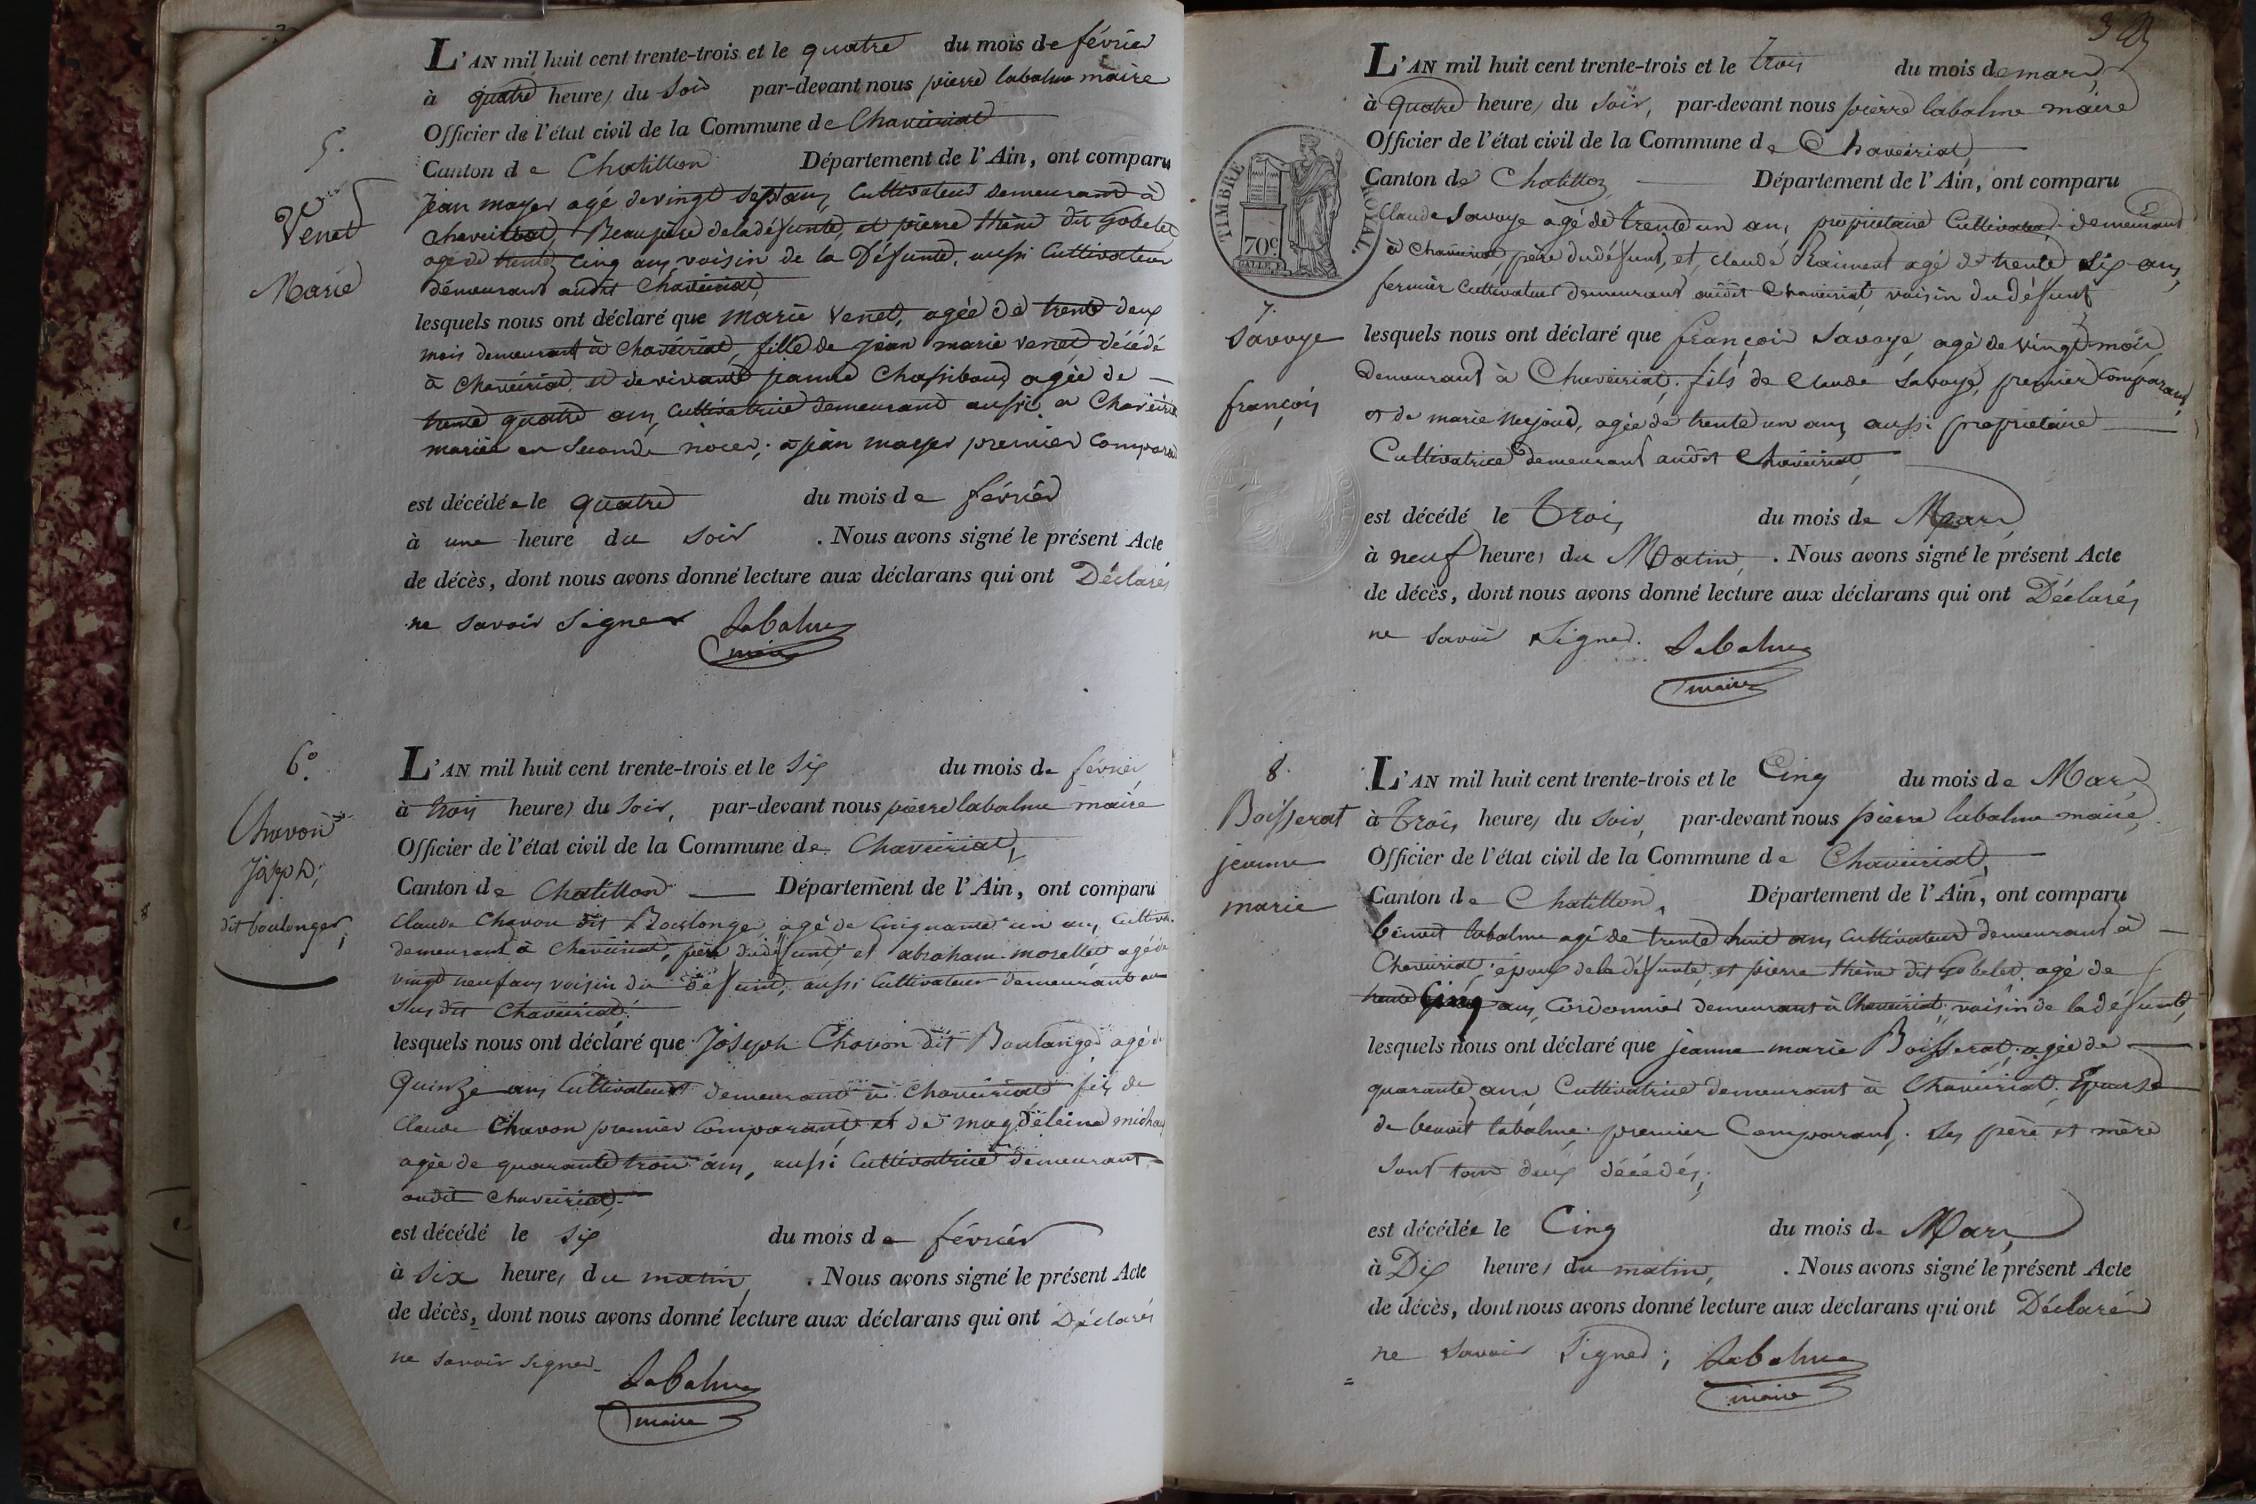 5.
Venet
Marie
L'AN mil huit cent trente-trois et le quatre du mois de février
à quatre heures du soir par-devant nous pierre labalme maire
Officier de l'état civil de la Commune de Chaveiriat
Canton de Chatillon Département de l'Ain, ont comparu
jean mayer agé de vingt sept ans, Cultivateur demeurant à
Chaveiriat, Beaupère de la défunte, et pierre thène dit Gobelet
agé de trente cinq ans voisin de la Défunte, aussi Cultivateur
démeurant audit Chaveiriat,
lesquels nous ont déclaré que marie Venet, agée de trente deux
mois demeurant à Chaveiriat, fille de jean marie venet décédé
à Chaveiriat, et de vivante jeanne Chassiboud agée de
trente quatre ans, Cultivatrice demeurant aussi a Chaveiriat
mariée en seconde noces, a jean mayer premier Comparant
est décédée le quatre du mois de février
à une heure du soir . Nous avons signé le présent Acte
de décès, dont nous avons donné lecture aux déclarans qui ont Déclarés
ne savoir signer Labalme
maire
6°.
Chavon
Joseph,
dit boulanger,
L'AN mil huit cent trente-trois et le six du mois de février
à trois heures du soir, par-devant nous pierre labalme maire
Officier de l'état civil de la Commune de Chaveiriat,
Canton de Chatillon Département de l'Ain, ont comparu
Claude Chavon dit Boulonger, agé de Cinquante un ans, Cultiv.
demeurant à Chaveiriat, père du défunt, et abraham morellet agé de
vingt neuf ans voisin du défunt, aussi Cultivateur demeurant au
susdit Chaveiriat.
lesquels nous ont déclaré que Joseph Chavon dit Boulanger agé de
Quinze ans Cultivateur demeurant à Chaveiriat fils de
Claude Chavon premier Comparant, et de magdeleine michau
agée de quarante trois ans, aussi Cultivatrice demeurant
audit Chaveiriat,
est décédé le six du mois de février
à six heures du matin, . Nous avons signé le présent Acte
de décès, dont nous avons donné lecture aux déclarans qui ont Déclarés
ne savoir signer Labalme
maire
3
TIMBRE ROYAL
70c
7.
Savoye
françois
L'AN mil huit cent trente-trois et le trois du mois de mars
à quatre heures du soir, par-devant nous pierre labalme maire
Officier de l'état civil de la Commune de Chaveiriat
Canton de Chatillon Département de l'Ain, ont comparu
Claude Savoye agé de trente un ans, propriétaire Cultivateur demeurant
à Chaveiriat, père du défunt, et, claude Raiment agé de trente six ans,
fermier Cultivateur demeurant audit Chaveiriat, voisin du défunt
lesquels nous ont déclaré que françois Savoye, agé de vingt mois
demeurant à Chaveiriat, fils de Claude Savoye, premier Comparant,
et de marie agée de trente un ans aussi propriétaire
Cultivatrice demeurant audit Chaveiriat,
est décédé le trois du mois de Mars
à neuf heures du Matin, . Nous avons signé le présent Acte
de décès, dont nous avons donné lecture aux déclarans qui ont Déclarés
ne savoir signer. Labalme
maire
8.
Boisserat
jeanne
marie
L'AN mil huit cent trente-trois et le Cinq du mois de Mars
à trois heures du soir, par-devant nous pierre labalme maire,
Officier de l'état civil de la Commune de Chaveiriat,
Canton de Chatillon, Département de l'Ain, ont comparu
benoit labalme agé de trente huit ans Cultivateur demeurant à
Chaveiriat, époux de la défunte, et pierre thène dit Gobelet, agé de
trente Cinq ans, Cordonnier demeurant à Chaveiriat, voisin de la défunte,
lesquels nous ont déclaré que jeanne marie Boisserat, agée de
quarante ans Cultivatrice demeurant à Chaveiriat, Epouse
de benoit labalme premier Comparant, ses père et mère
sont tous deux décédés,
est décédée le Cinq du mois de Mars
à Dix heures du matin, . Nous avons signé le présent Acte
de décès, dont nous avons donné lecture aux déclarans qui ont Déclarés
ne savoir signer; Labalme
maire